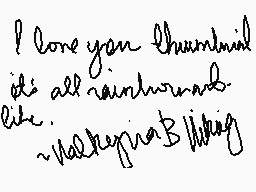 I love you thumbnail
it's all rainbow
like.
~Walkejira B Viking